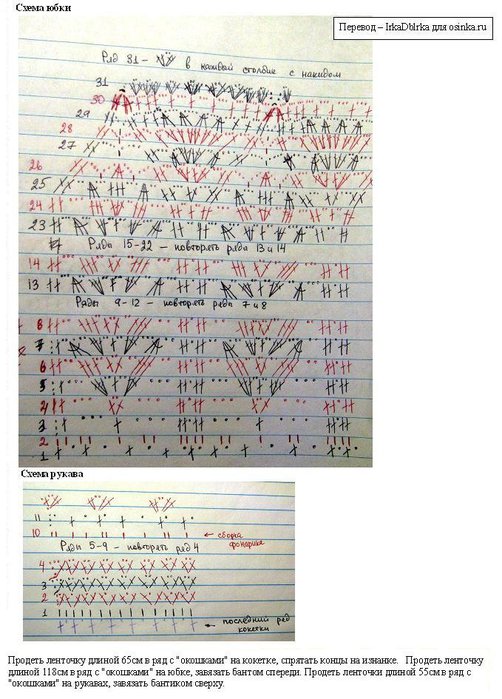 Схема юбки
Перевод – IrkaDЫrka для osinka.ru
Ряд 31 – в каждый столбик с накидом
31
30
29
28
27
26
25
24
23
Ряды 15-22 – повторять ряды 13 и 14
14
13
Ряды 9-12 – повторять ряды 7 и 8
8
7
6
5
4
3
2
1
Схема рукава
11
10 ← сборка
фонарика
Ряды 5-9 – повторять ряд 4
4
3
2
1
← последний ряд
кокетки
Продеть ленточку длиной 65см в ряд с "окошками" на кокетке, спрятать концы на изнанке. Продеть ленточку
длиной 118см в ряд с "окошками" на юбке, завязать бантом спереди. Продеть ленточки длиной 55см в ряд с
"окошками" на рукавах, завязать бантиком сверху.